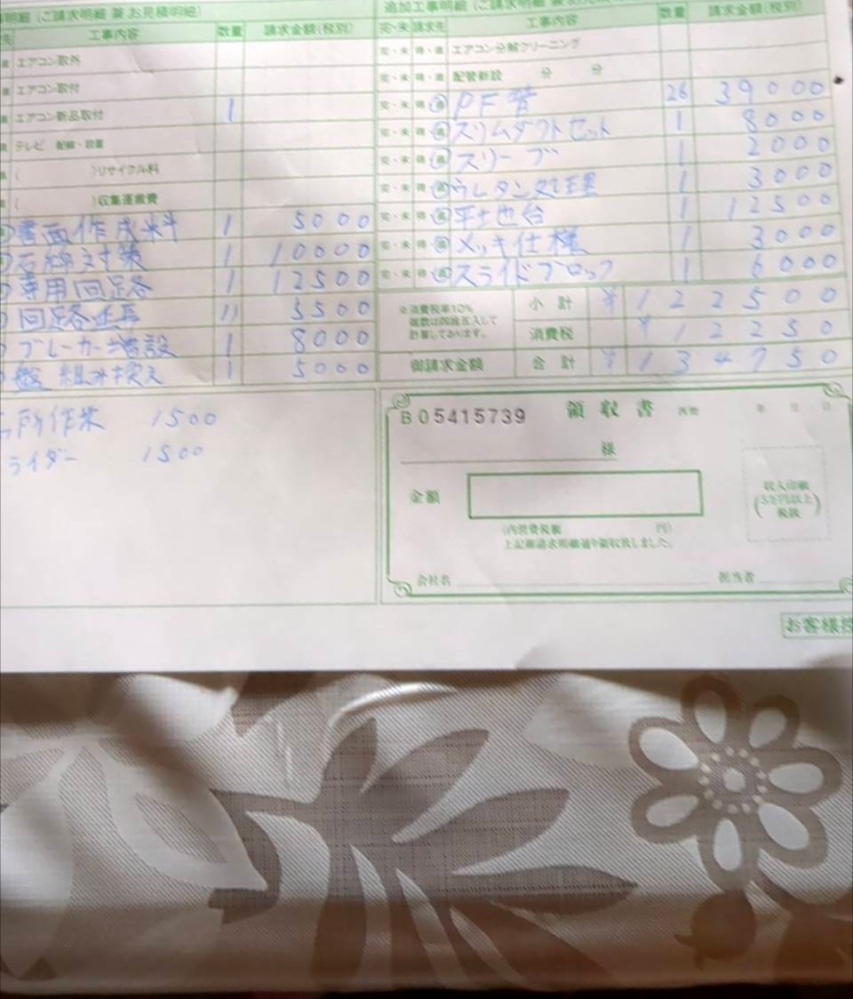 明細 (ご請求明細 兼 お見積明細)
工事内容 数量 請求金額(税別)
エアコン取外
エアコン取付
エアコン新品取付 1
テレビ 配線・設置
( )リサイクル料
( )収集運搬費
書面作成料 1 5000
石綿対策 1 10000
専用回路 1 12500
回路延長 11 5500
ブレーカー増設 1 8000
盤組み換え 1 5000
所作業 1500
ライダー 1500
追加工事明細 (ご請求明細 兼 お見
完・未 請求先 工事内容 数量 請求金額(税別)
完・未 エアコン分解クリーニング
完・未 配管新設 分 分
完・未 PF管 26 39000
完・未 スリムダクトセット 1 8000
完・未 スリーブ 1 2000
完・未 ウレタン処理 1 3000
完・未 平地台 1 12500
完・未 メッキ仕様 1 3000
完・未 スライドブロック 1 6000
※消費税率10%
端数は四捨五入して
計算しております。
小計 ¥122500
消費税 ¥12250
御請求金額 合計 ¥134750
B05415739 領収書 西暦 年 月 日
様
金額
(内消費税額 円)
上記御請求明細通り領収致しました。
収入印紙
(5万円以上)
税抜
会社名 担当者
お客様控